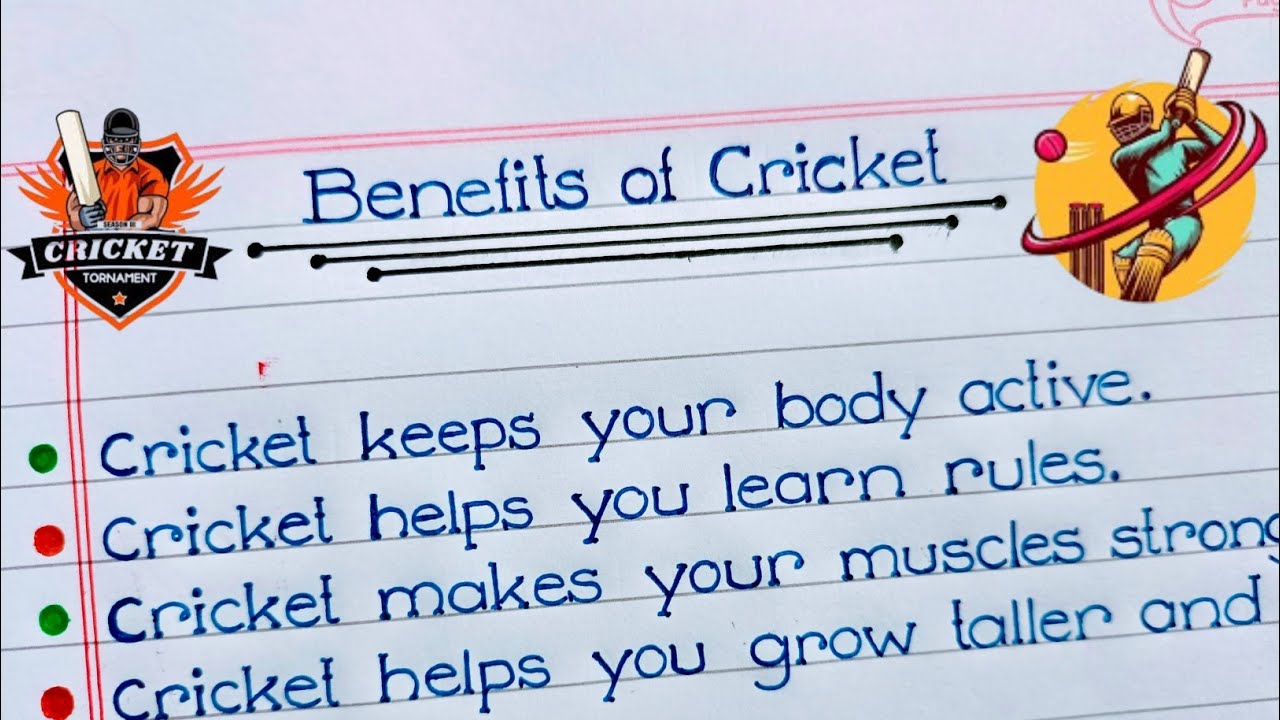 Benefits of Cricket
SEASON III
CRICKET
TORNAMENT
Cricket keeps your body active.
Cricket helps you learn rules.
Cricket makes your muscles strong
Cricket helps you grow taller and